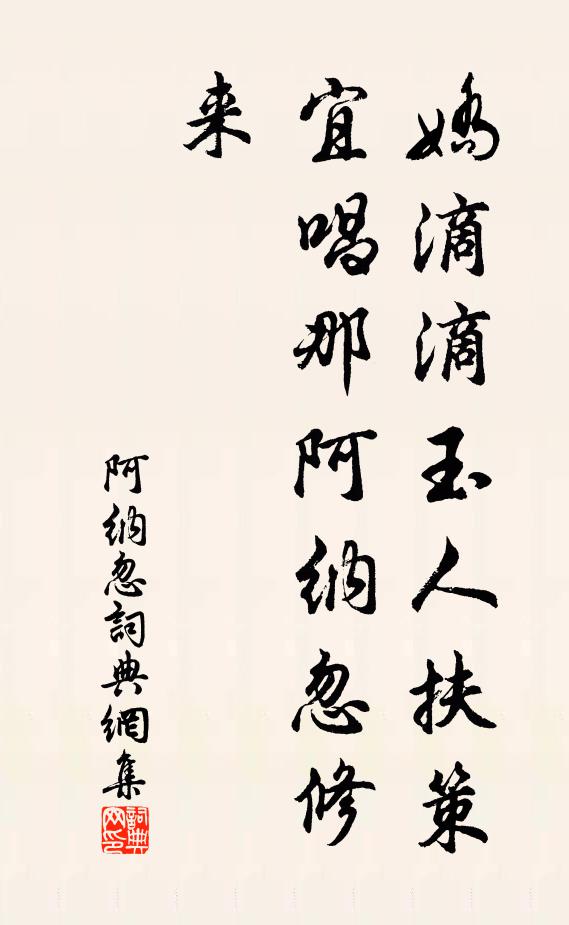 嬌滴滴玉人扶策
宜唱那阿納忽修
来
阿納忽詞典網集
詞典
网印